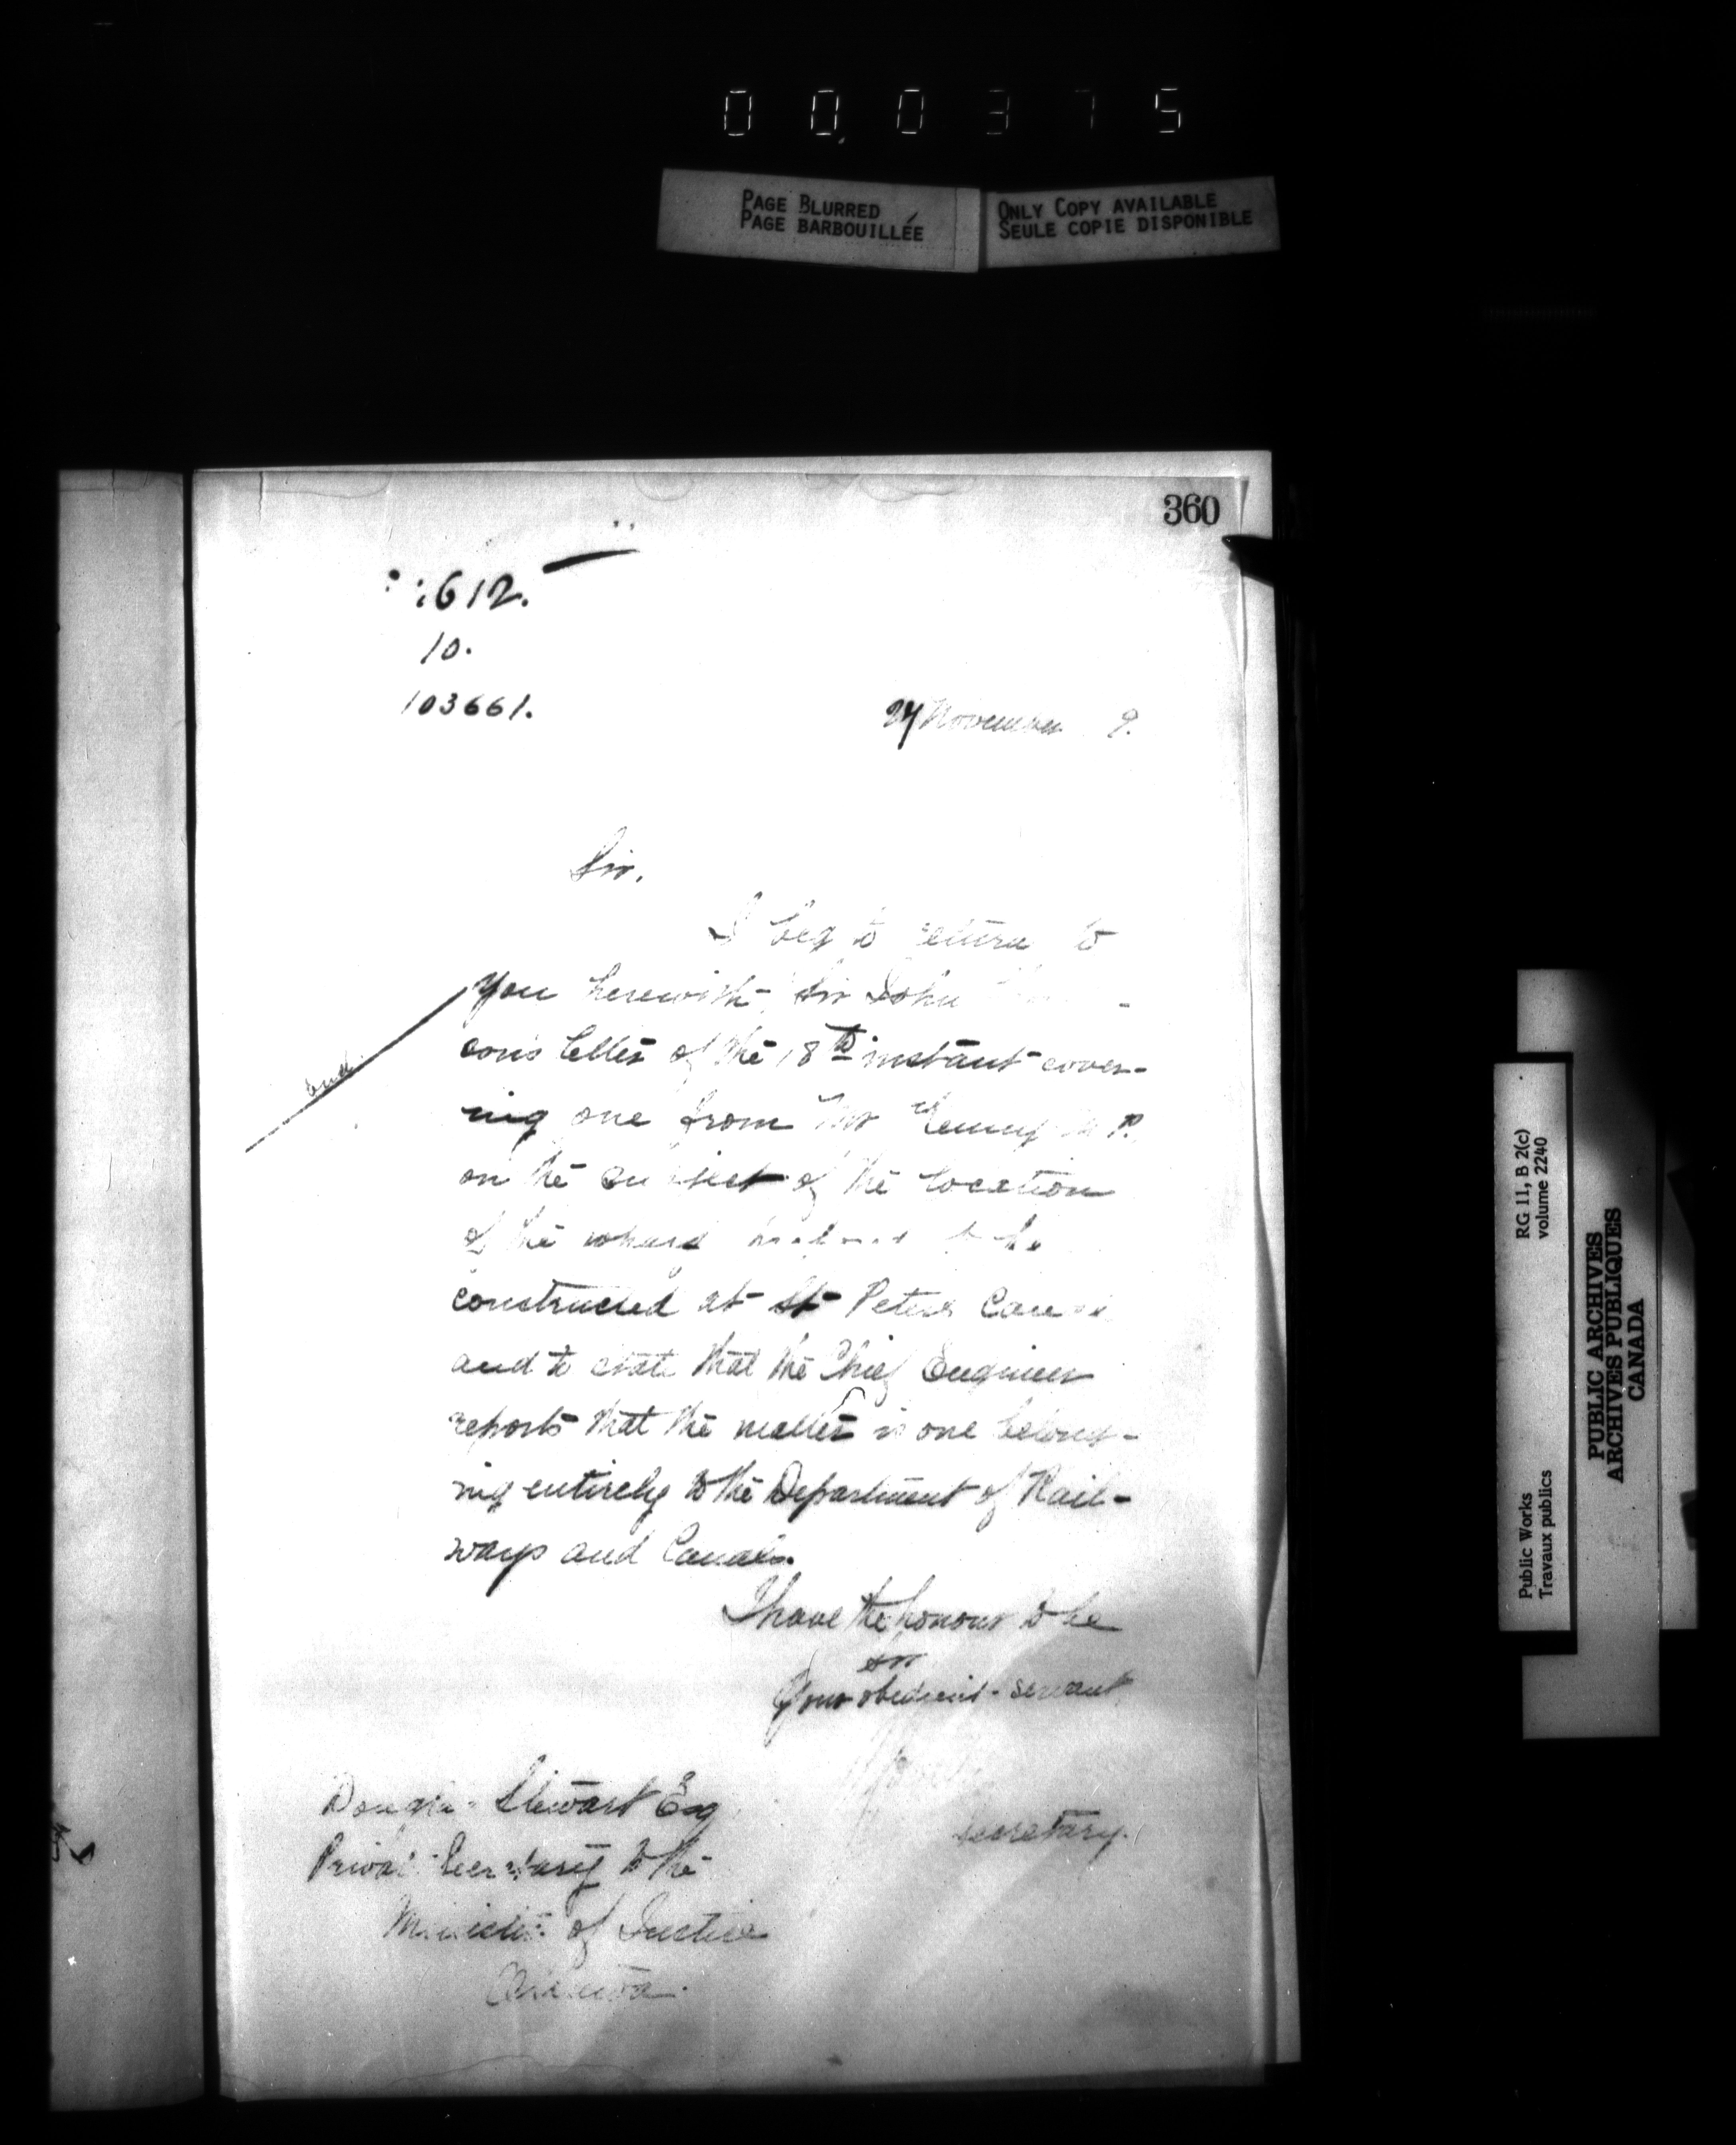 000375
PAGE BLURRED
PAGE BARBOUILLÉE
ONLY COPY AVAILABLE
SEULE COPIE DISPONIBLE
360
612.
10.
103661.
27 November 9.
Sir,
I beg to return to
you herewith Sir John
son's letter of the 18th instant cover-
encl
ing one from Mr Kenny M.P.
on the subject of the location
of the wharf to be
constructed at St Peters Canal
and to state that the Chief Engineer
reports that the matter is one belong-
ing entirely to the Department of Rail-
ways and Canals.
I have the honour to be
Sir
Your obedient servant
Secretary.
Douglas Stewart Esq
Private Secretary to the
Minister of Justice
Ottawa.
RG 11, B 2(c)
volume 2240
Public Works
Travaux publics
PUBLIC ARCHIVES
ARCHIVES PUBLIQUES
CANADA